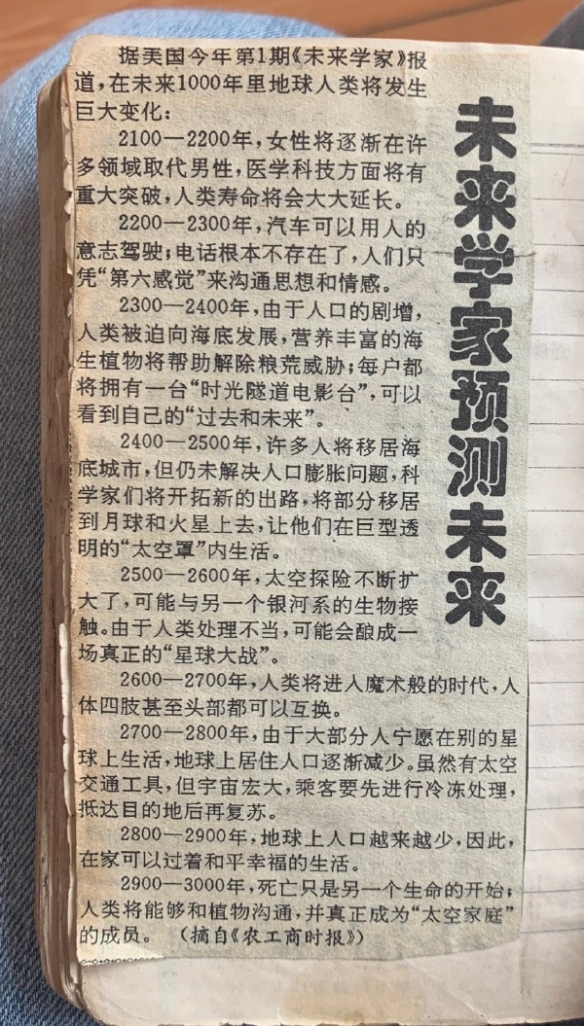 未来学家预测未来
据美国今年第1期《未来学家》报
道，在未来1000年里地球人类将发生
巨大变化：
2100—2200年，女性将逐渐在许
多领域取代男性，医学科技方面将有
重大突破，人类寿命将会大大延长。
2200—2300年，汽车可以用人的
意志驾驶；电话根本不存在了，人们只
凭“第六感觉”来沟通思想和情感。
2300—2400年，由于人口的剧增，
人类被迫向海底发展，营养丰富的海
生植物将帮助解除粮荒威胁；每户都
将拥有一台“时光隧道电影台”，可以
看到自己的“过去和未来”。
2400—2500年，许多人将移居海
底城市，但仍未解决人口膨胀问题，科
学家们将开拓新的出路，将部分移居
到月球和火星上去，让他们在巨型透
明的“太空罩”内生活。
2500—2600年，太空探险不断扩
大了，可能与另一个银河系的生物接
触。由于人类处理不当，可能会酿成一
场真正的“星球大战”。
2600—2700年，人类将进入魔术般的时代，人
体四肢甚至头部都可以互换。
2700—2800年，由于大部分人宁愿在别的星
球上生活，地球上居住人口逐渐减少。虽然有太空
交通工具，但宇宙宏大，乘客要先进行冷冻处理，
抵达目的地后再复苏。
2800—2900年，地球上人口越来越少，因此，
在家可以过着和平幸福的生活。
2900—3000年，死亡只是另一个生命的开始；
人类将能够和植物沟通，并真正成为“太空家庭”
的成员。（摘自《农工商时报》）